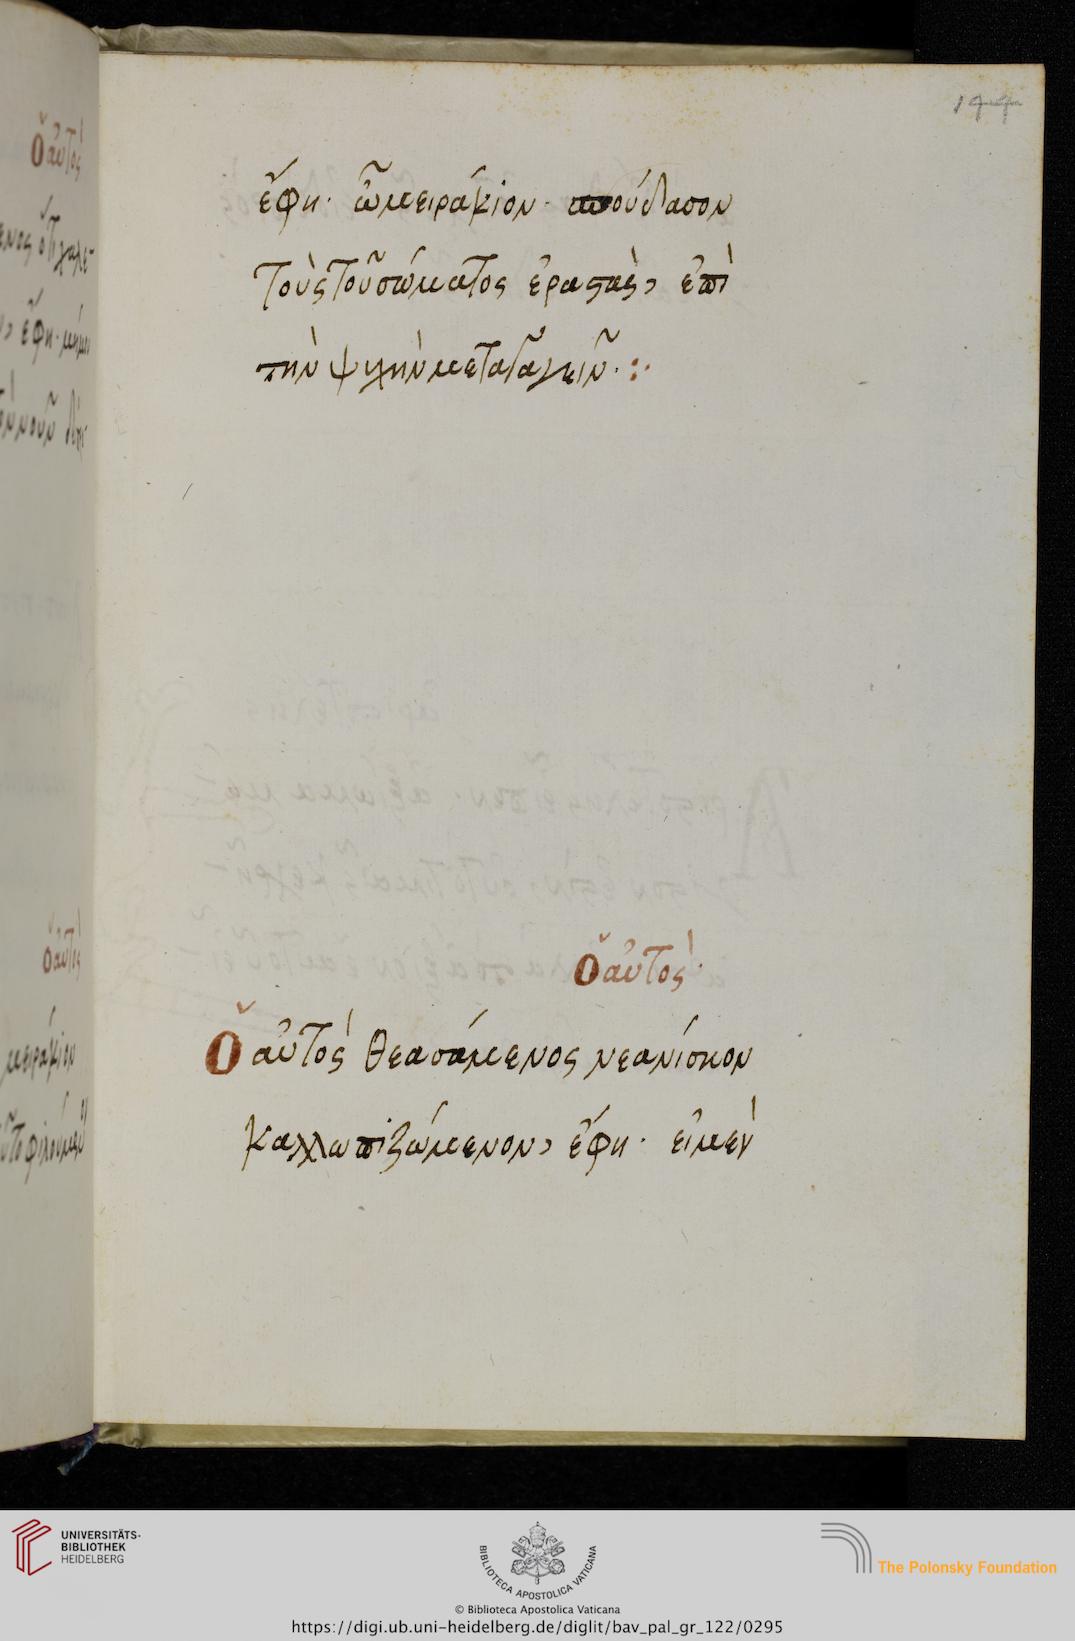 ἔφη· ὦ μειράκιον· σπούδασον
τοὺς τοῦ σώματος ἐραστὰς, ἐπὶ
τὴν ψυχὴν μεταγαγεῖν·
ὁ αὐτός·
Ὁ αὐτὸς θεασάμενος νεανίσκον
καλλωπιζόμενον, ἔφη· εἰ μὲν
UNIVERSITÄTS-
BIBLIOTHEK
HEIDELBERG
BIBLIOTECA APOSTOLICA VATICANA
The Polonsky Foundation
© Biblioteca Apostolica Vaticana
https://digi.ub.uni-heidelberg.de/diglit/bav_pal_gr_122/0295